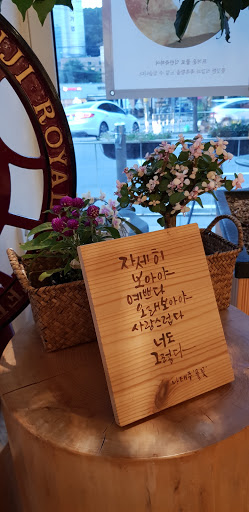 JI ROYA
자세히
보아야
예쁘다
오래보아야
사랑스럽다
너도
그렇다
나태주 '풀꽃'